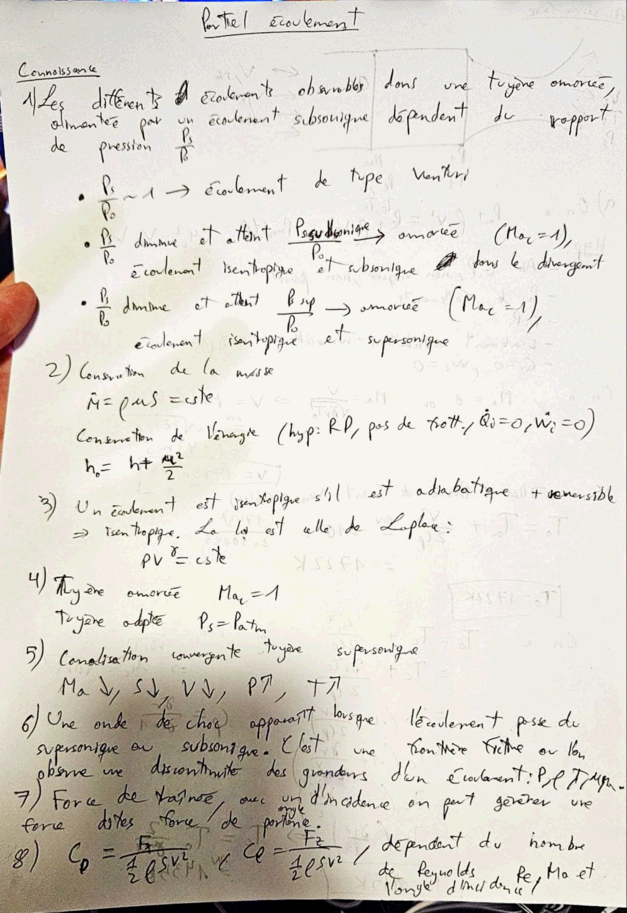 Partiel écoulement
Connaissance
1) Les différents écoulements observables dans une tuyère amorcée,
alimentée par un écoulement subsonique dépendent du rapport
de pression Ps/P0
• Ps/P0 ~ 1 → écoulement de type Venturi
• Ps/P0 diminue et atteint Psubsonique/P0 → amorcée (Mac = 1),
écoulement isentropique et subsonique dans le divergent
• Ps/P0 diminue et atteint Psup/P0 → amorcée (Mac = 1),
écoulement isentropique et supersonique
2) Conservation de la masse
ṁ = ρuS = cste
Conservation de l'énergie (hyp: RP, pas de frott, Q̇i = 0, Ẇi = 0)
h0 = h + u²/2
3) Un écoulement est isentropique s'il est adiabatique + reversible
⇒ isentropique. La loi est celle de Laplace:
PV^γ = cste
4) Tuyère amorcée Mac = 1
Tuyère adaptée Ps = Patm
5) Canalisation convergente tuyère supersonique
Ma ↓, S↓, V↓, P↗, T↗
6) Une onde de choc apparaît lorsque l'écoulement passe du
supersonique au subsonique. C'est une frontière fictive ou l'on
observe une discontinuité des grandeurs d'un écoulement: P, ρ, T, u,
7) Force de traînée, avec un angle d'incidence on peut générer une
force dites force de portance.
8) CD = / ½ρSV², Cl = Fz / ½ρSV², dépendent du nombre
de Reynolds Re, Ma et
l'angle d'incidence